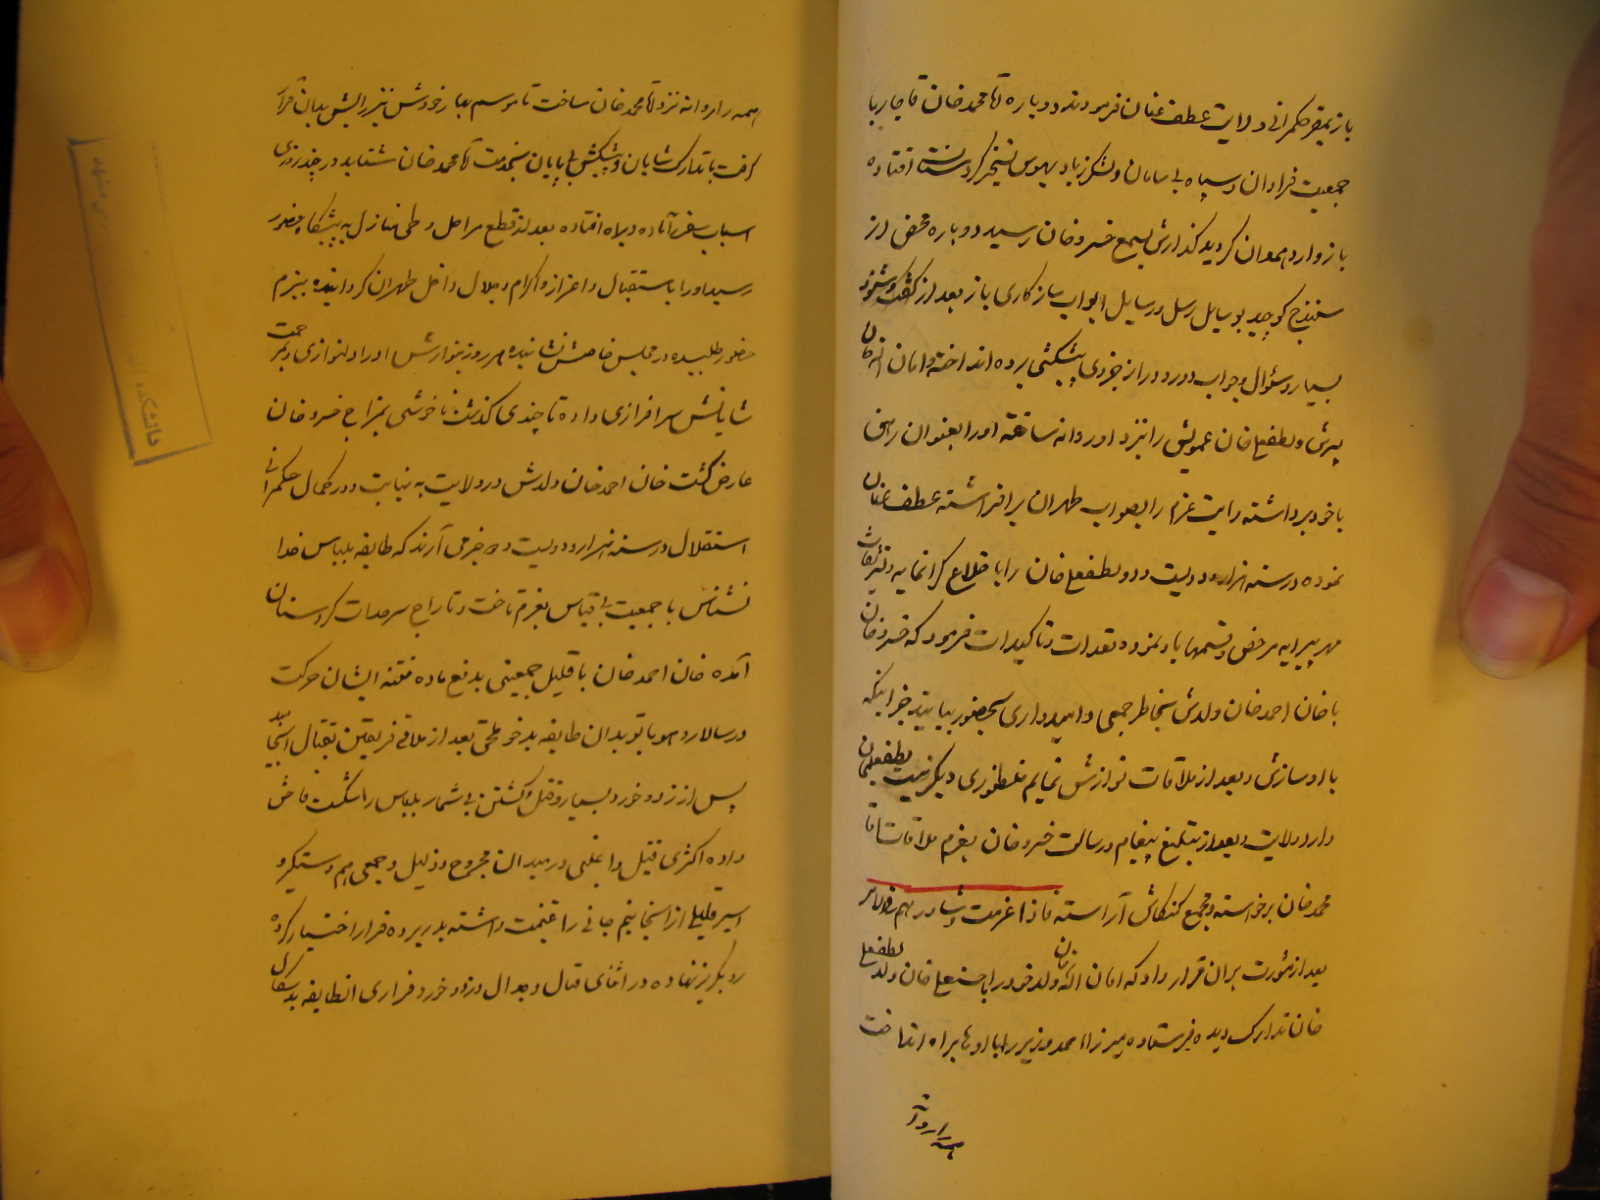 باز بمقر حکمرانی ولایت عطف عنان فرمودند دوباره آقا محمد خان قاجار با
جمعیت فراوان و سپاه بی سامان و لشکر زیاد بهوس تسخیر کردستان افتاده
باز وارد همدان کردید کذارش بسمع خسرو خان رسید دوباره محض از
سنندج کوچید بوسایل رسل و رسایل ابواب سازکاری باز بعد از گفت و شنود
بسیار و سؤال و جواب دور و دراز جزوی پیشکشی برده انداخته و امان الله خان
پسرش و لطفعلی خان عمویش را نزد او روانه ساخته او را بعنوان رهن
با خود برداشته رایت عزم را بصواب طهران برافراشته عطف عنان
نموده در سنه هزار و دویست و دو لطفعلی خان را با خلاع کرانمایه و
مهر پیرایه مرخص و قسمها یاد نمود و تعهدات و تاکیدات فرمود که خسرو خان
با خان احمد خان ولدش بخاطر جمعی و امیدواری بحضور بیایند جز اینکه
با او سازش و بعد از ملاقات نوازش نمایم منظوری دیگر نیست لطفعلیخان
وارد ولایت و بعد از تبلیغ پیغام و رسالت خسرو خان بعزم ملاقات آقا
محمد خان برخواسته و مجمع کنکاش آراسته
بعد از مشورت بر آن قرار داد که امان الله خان ولد خود را با حسنعلی خان ولد لطفعلی
خان تدارک دیده فرستاده میرزا احمد وزیر را با اونها براه انداخت
همه را روانه
همه را روانه نزد آقا محمد خان ساخت تا موسم بهار خودش نیز رایش بدان قرار
گرفت با تدارک شایان و پیشکش بی پایان بخدمت آقا محمد خان شتابد در چند روزی
اسباب سفر آماده و براه افتاده بعد از قطع مراحل و طی منازل به پیشکاه حضور
رسید او را با استقبال و اعزاز و اکرام و جلال داخل طهران کردانیده ببزم
حضور طلبیده در مجلس خاصش نشانیده هر روز بنوازش او را دلنوازی و بمرحمت
شایانش سرافرازی داده تا چندی کذشت ناخوشی بمزاج خسرو خان
عارض کشت خان احمد خان ولدش در ولایت به نیابت و در کمال حکمرانی
استقلال در سنه هزار و دویست و خبر می آرند که طایفه بلباس خدا
نشناس با جمعیت بی قیاس بعزم تاخت و تاراج سرحدات کردستان
آمده خان احمد خان با قلیل جمعیتی بدفع ماده فتنه ایشان حرکت
در سالار بدان طایفه بدخو ملحق بعد از تلاقی فریقین بقتال انجامید
پس از زد و خورد بسیار و قتل و کشتن بی شمار بلباس را شکست فاحش
داده اکثری قتیل و اغلبی در میدان مجروح و ذلیل و جمعی هم دستگیر و
اسیر قلیلی از آنجا نیم جانی را غنیمت داشته بدر برده فرار اختیار کرده
رو بگریز نهاده در اثنای قتال و جدال و زد و خورد و فراری انطایفه بدسکال